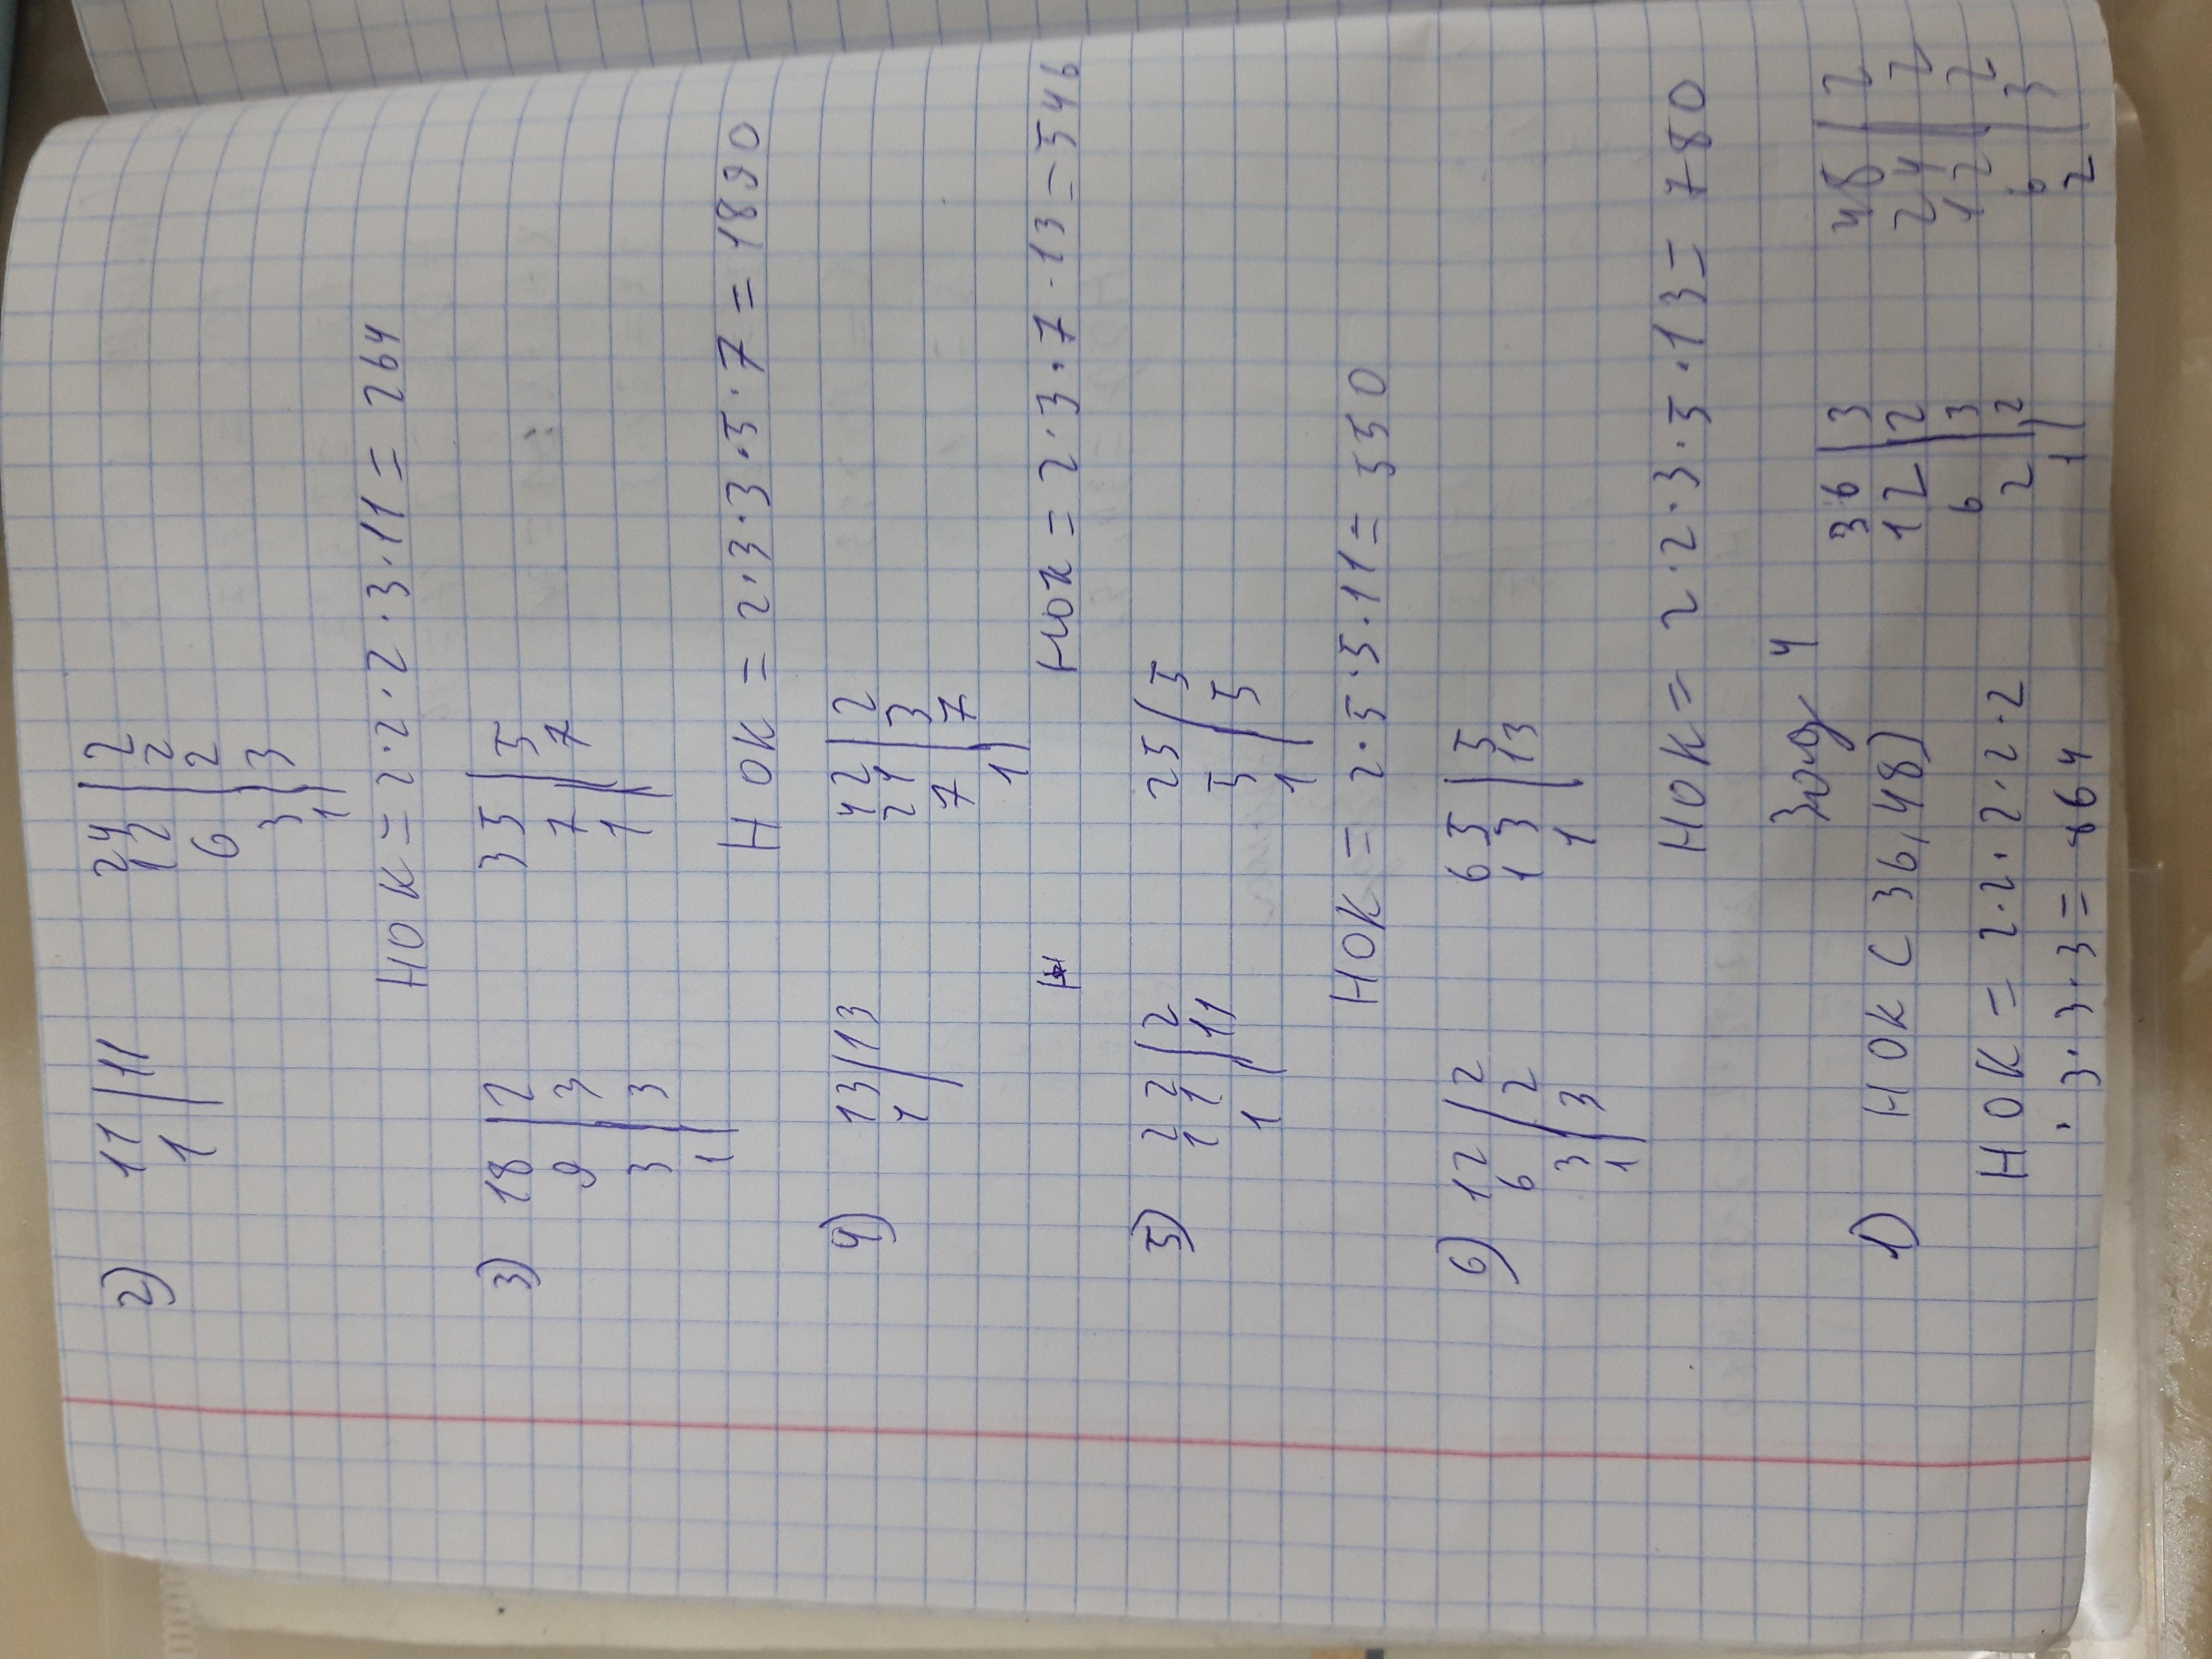 2) 11 | 11 24 | 2
1 12 | 2
6 | 2
3 | 3
1
НОК = 2·2·2·3·11 = 264
3) 18 | 2 35 | 5
9 | 3 7 | 7
3 | 3 1
1
НОК = 2·3·3·3·5·7 = 1890
4) 13 | 13 42 | 2
1 21 | 3
7 | 7
1
НОК = 2·3·7·13 = 546
5) 22 | 2 25 | 5
11 | 11 5 | 5
1 1
НОК = 2·5·5·11 = 550
6) 12 | 2 65 | 5
6 | 2 13 | 13
3 | 3 1
1
НОК = 2·2·3·5·13 = 780
4
1) НОК (36,48) 36 | 3 48 | 2
12 | 2 24 | 2
6 | 3 12 | 2
2 | 2 6 | 3
1 2
НОК = 2·2·2·2·2
·3·3·3 = 864